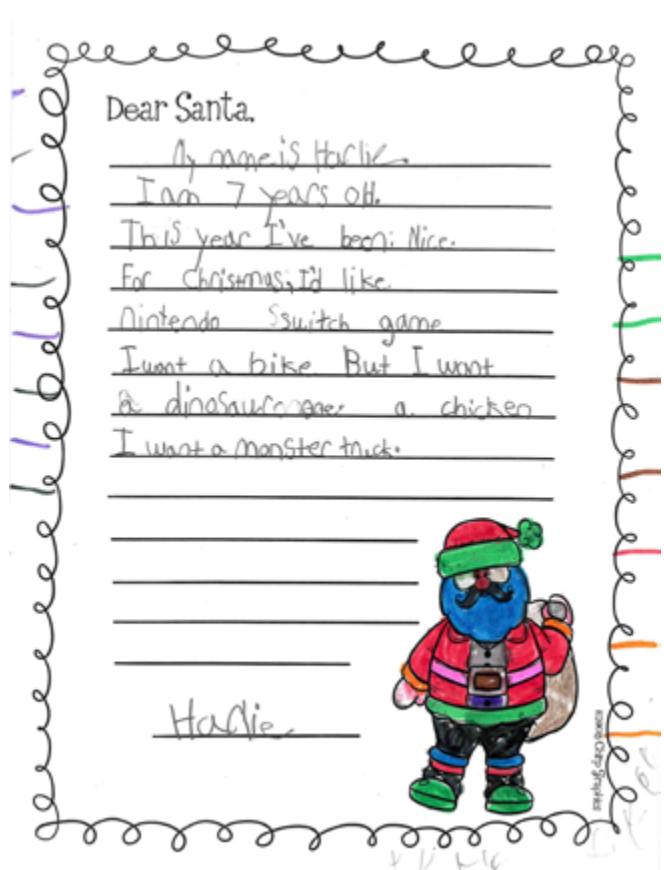 Dear Santa,
My name is Harlie.
I am 7 years old.
This year I've been: Nice.
For Christmas, I'd like
nintendo Sswitch game
I want a bike. But I want
a dinosaur a chicken
I want a monster truck.
Harlie